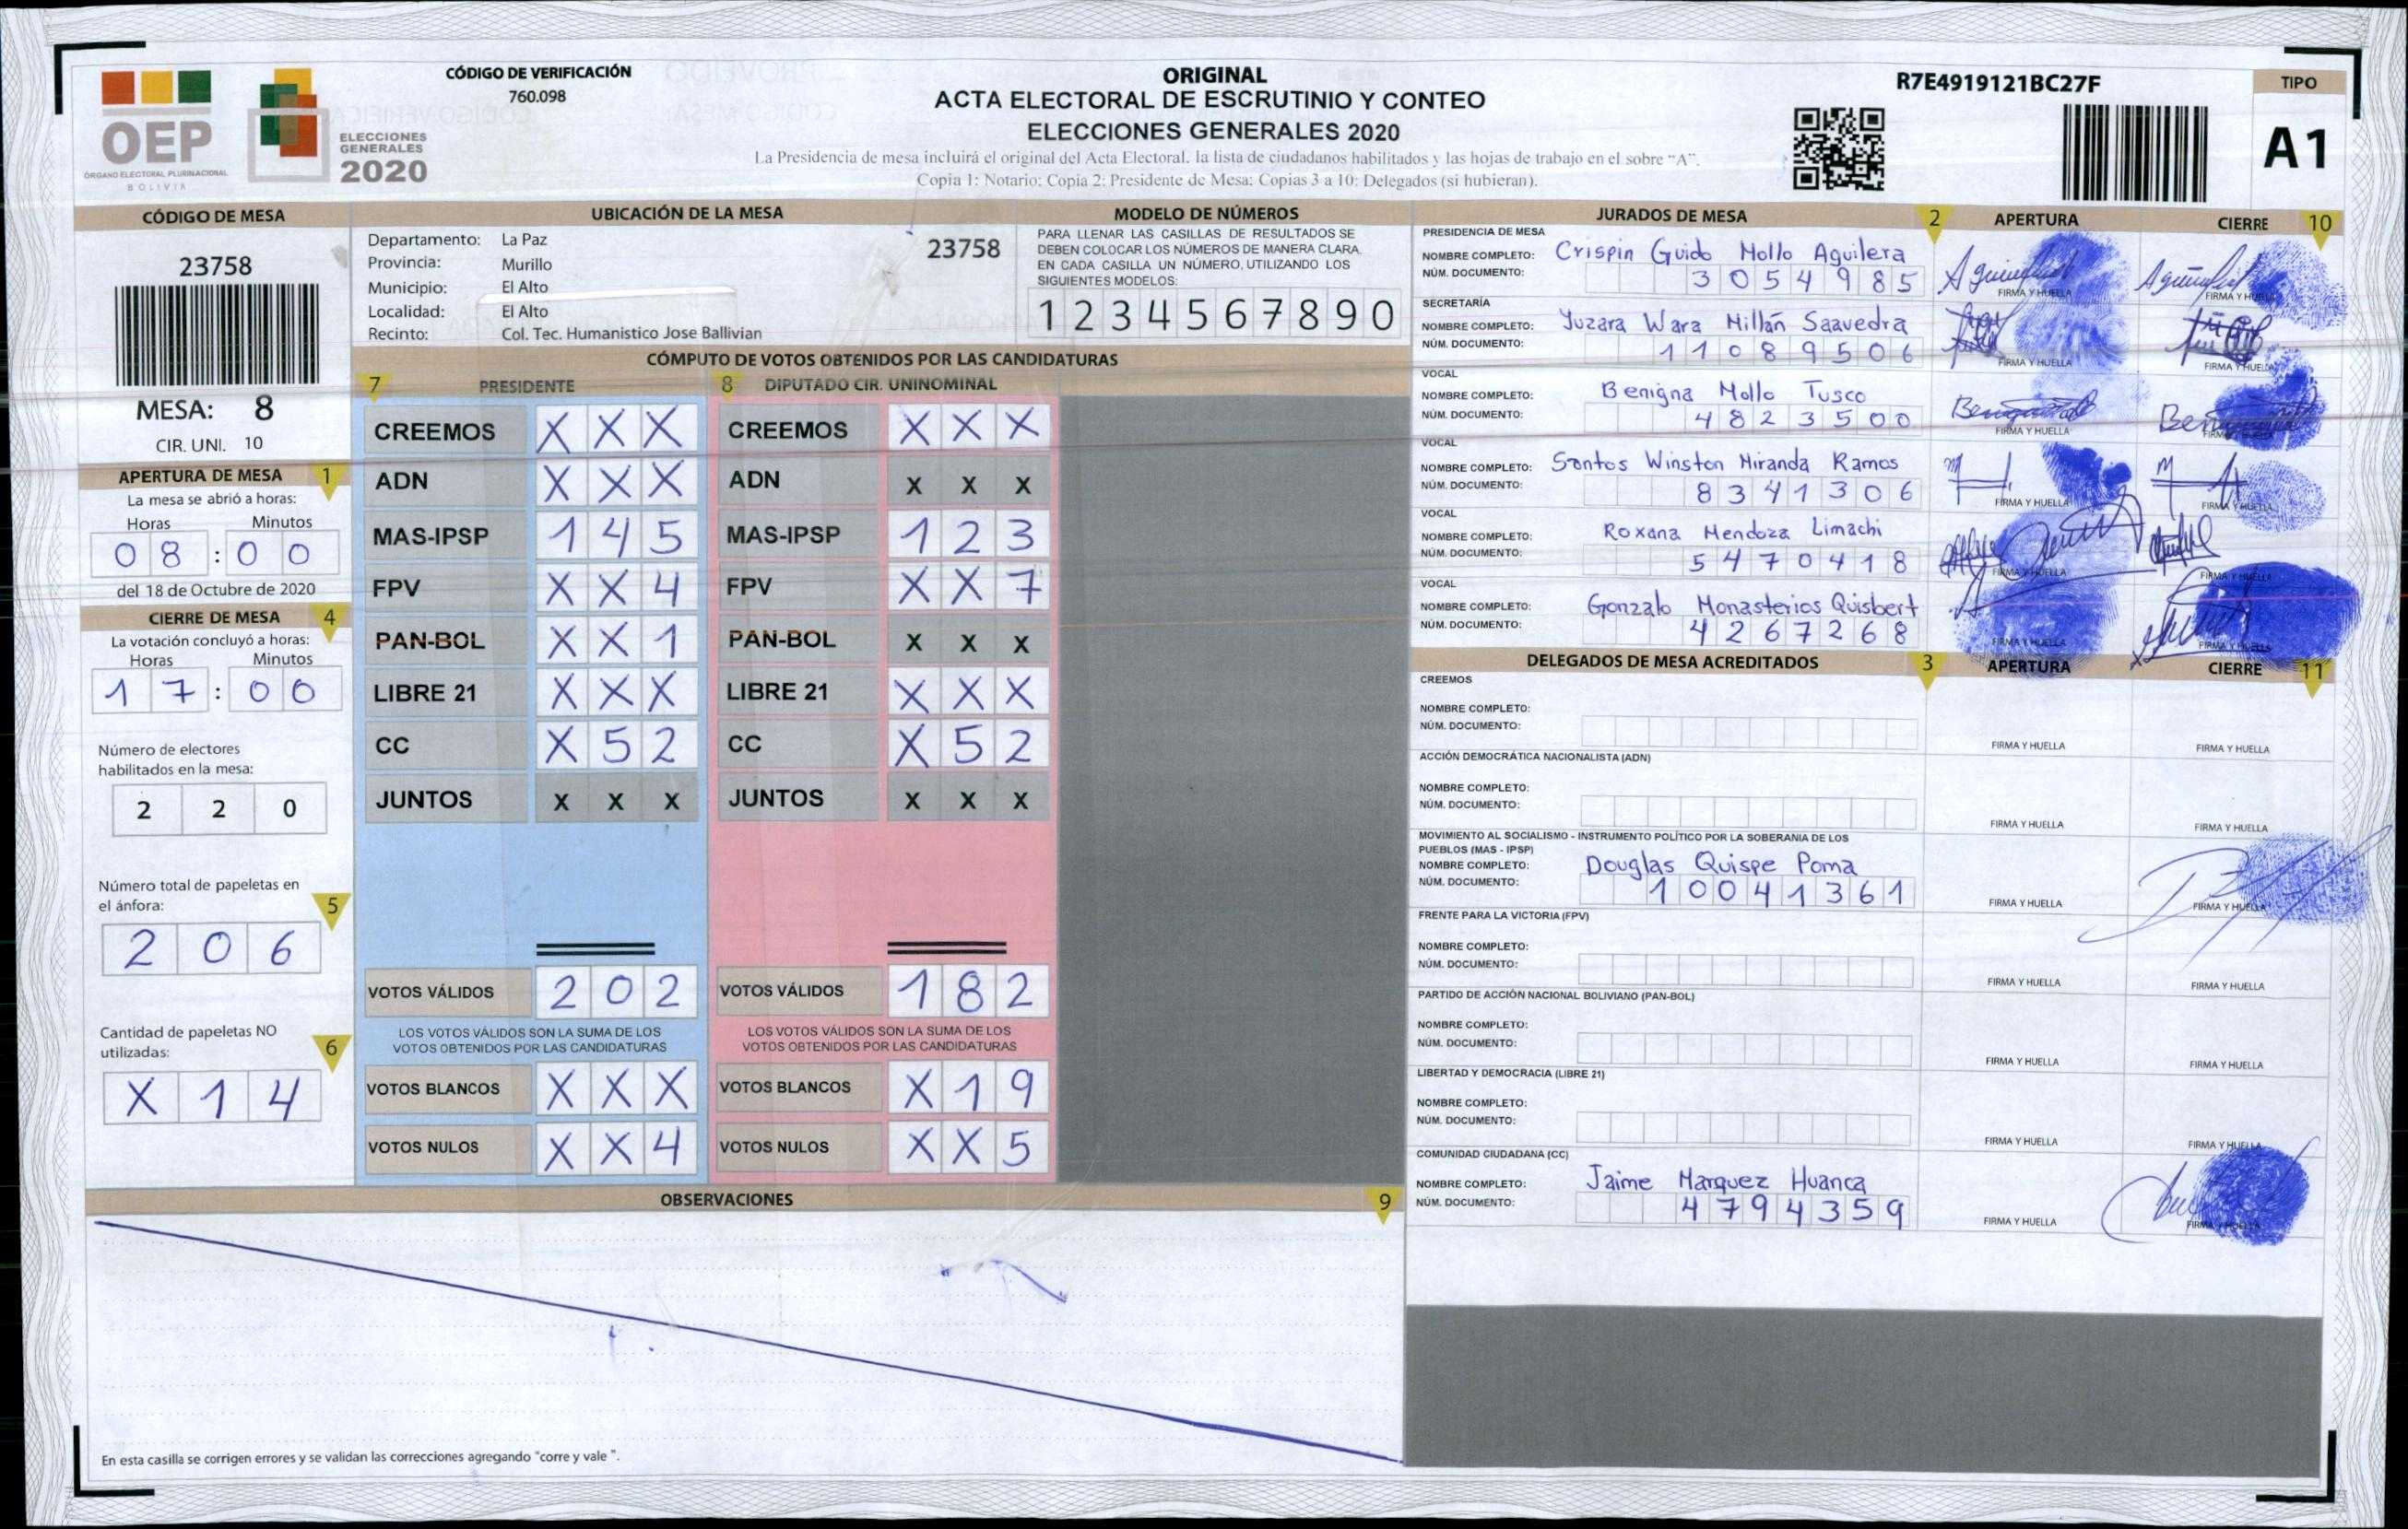 CÓDIGO DE VERIFICACIÓN
760.098
OEP
ÓRGANO ELECTORAL PLURINACIONAL
BOLIVIA
ELECCIONES
GENERALES
2020
ORIGINAL
ACTA ELECTORAL DE ESCRUTINIO Y CONTEO
ELECCIONES GENERALES 2020
La Presidencia de mesa incluirá el original del Acta Electoral, la lista de ciudadanos habilitados y las hojas de trabajo en el sobre "A".
Copia 1: Notario; Copia 2: Presidente de Mesa; Copias 3 a 10: Delegados (si hubieran).
R7E4919121BC27F
TIPO
A1
CÓDIGO DE MESA
23758
MESA: 8
CIR. UNI. 10
APERTURA DE MESA 1
La mesa se abrió a horas:
Horas Minutos
0 8 : 0 0
del 18 de Octubre de 2020
CIERRE DE MESA 4
La votación concluyó a horas:
Horas Minutos
1 7 : 0 0
Número de electores
habilitados en la mesa:
2 2 0
Número total de papeletas en
el ánfora: 5
2 0 6
Cantidad de papeletas NO
utilizadas: 6
X 1 4
UBICACIÓN DE LA MESA
Departamento: La Paz
Provincia: Murillo
Municipio: El Alto
Localidad: El Alto
Recinto: Col. Tec. Humanistico Jose Ballivian
23758
MODELO DE NÚMEROS
PARA LLENAR LAS CASILLAS DE RESULTADOS SE
DEBEN COLOCAR LOS NÚMEROS DE MANERA CLARA,
EN CADA CASILLA UN NÚMERO, UTILIZANDO LOS
SIGUIENTES MODELOS:
1 2 3 4 5 6 7 8 9 0
CÓMPUTO DE VOTOS OBTENIDOS POR LAS CANDIDATURAS
7 PRESIDENTE
CREEMOS X X X
ADN X X X
MAS-IPSP 1 4 5
FPV X X 4
PAN-BOL X X 1
LIBRE 21 X X X
CC X 5 2
JUNTOS X X X
VOTOS VÁLIDOS 2 0 2
LOS VOTOS VÁLIDOS SON LA SUMA DE LOS
VOTOS OBTENIDOS POR LAS CANDIDATURAS
VOTOS BLANCOS X X X
VOTOS NULOS X X 4
8 DIPUTADO CIR. UNINOMINAL
CREEMOS X X X
ADN X X X
MAS-IPSP 1 2 3
FPV X X 7
PAN-BOL X X X
LIBRE 21 X X X
CC X 5 2
JUNTOS X X X
VOTOS VÁLIDOS 1 8 2
LOS VOTOS VÁLIDOS SON LA SUMA DE LOS
VOTOS OBTENIDOS POR LAS CANDIDATURAS
VOTOS BLANCOS X 1 9
VOTOS NULOS X X 5
OBSERVACIONES 9
En esta casilla se corrigen errores y se validan las correcciones agregando "corre y vale ".
JURADOS DE MESA 2 APERTURA CIERRE 10
PRESIDENCIA DE MESA
NOMBRE COMPLETO: Crispin Guido Mollo Aguilera
NÚM. DOCUMENTO: 3 0 5 4 9 8 5
FIRMA Y HUELLA FIRMA Y HUELLA
SECRETARÍA
NOMBRE COMPLETO: Yuzara Wara Millán Saavedra
NÚM. DOCUMENTO: 1 1 0 8 9 5 0 6
FIRMA Y HUELLA FIRMA Y HUELLA
VOCAL
NOMBRE COMPLETO: Benigna Mollo Tusco
NÚM. DOCUMENTO: 4 8 2 3 5 0 0
FIRMA Y HUELLA FIRMA Y HUELLA
VOCAL
NOMBRE COMPLETO: Santos Winston Miranda Ramos
NÚM. DOCUMENTO: 8 3 4 1 3 0 6
FIRMA Y HUELLA FIRMA Y HUELLA
VOCAL
NOMBRE COMPLETO: Roxana Mendoza Limachi
NÚM. DOCUMENTO: 5 4 7 0 4 1 8
FIRMA Y HUELLA FIRMA Y HUELLA
VOCAL
NOMBRE COMPLETO: Gonzalo Monasterios Quisbert
NÚM. DOCUMENTO: 4 2 6 7 2 6 8
FIRMA Y HUELLA FIRMA Y HUELLA
DELEGADOS DE MESA ACREDITADOS 3 APERTURA CIERRE 11
CREEMOS
NOMBRE COMPLETO:
NÚM. DOCUMENTO:
FIRMA Y HUELLA FIRMA Y HUELLA
ACCIÓN DEMOCRÁTICA NACIONALISTA (ADN)
NOMBRE COMPLETO:
NÚM. DOCUMENTO:
FIRMA Y HUELLA FIRMA Y HUELLA
MOVIMIENTO AL SOCIALISMO - INSTRUMENTO POLÍTICO POR LA SOBERANIA DE LOS
PUEBLOS (MAS - IPSP)
NOMBRE COMPLETO: Douglas Quispe Poma
NÚM. DOCUMENTO: 1 0 0 4 1 3 6 1
FIRMA Y HUELLA FIRMA Y HUELLA
FRENTE PARA LA VICTORIA (FPV)
NOMBRE COMPLETO:
NÚM. DOCUMENTO:
FIRMA Y HUELLA FIRMA Y HUELLA
PARTIDO DE ACCIÓN NACIONAL BOLIVIANO (PAN-BOL)
NOMBRE COMPLETO:
NÚM. DOCUMENTO:
FIRMA Y HUELLA FIRMA Y HUELLA
LIBERTAD Y DEMOCRACIA (LIBRE 21)
NOMBRE COMPLETO:
NÚM. DOCUMENTO:
FIRMA Y HUELLA FIRMA Y HUELLA
COMUNIDAD CIUDADANA (CC)
NOMBRE COMPLETO: Jaime Marquez Huanca
NÚM. DOCUMENTO: 4 7 9 4 3 5 9
FIRMA Y HUELLA FIRMA Y HUELLA